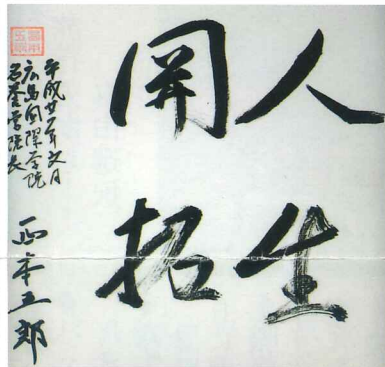 人生
開拓
平成廿一年文月
広島国際学院
名誉学院長
西本五郎